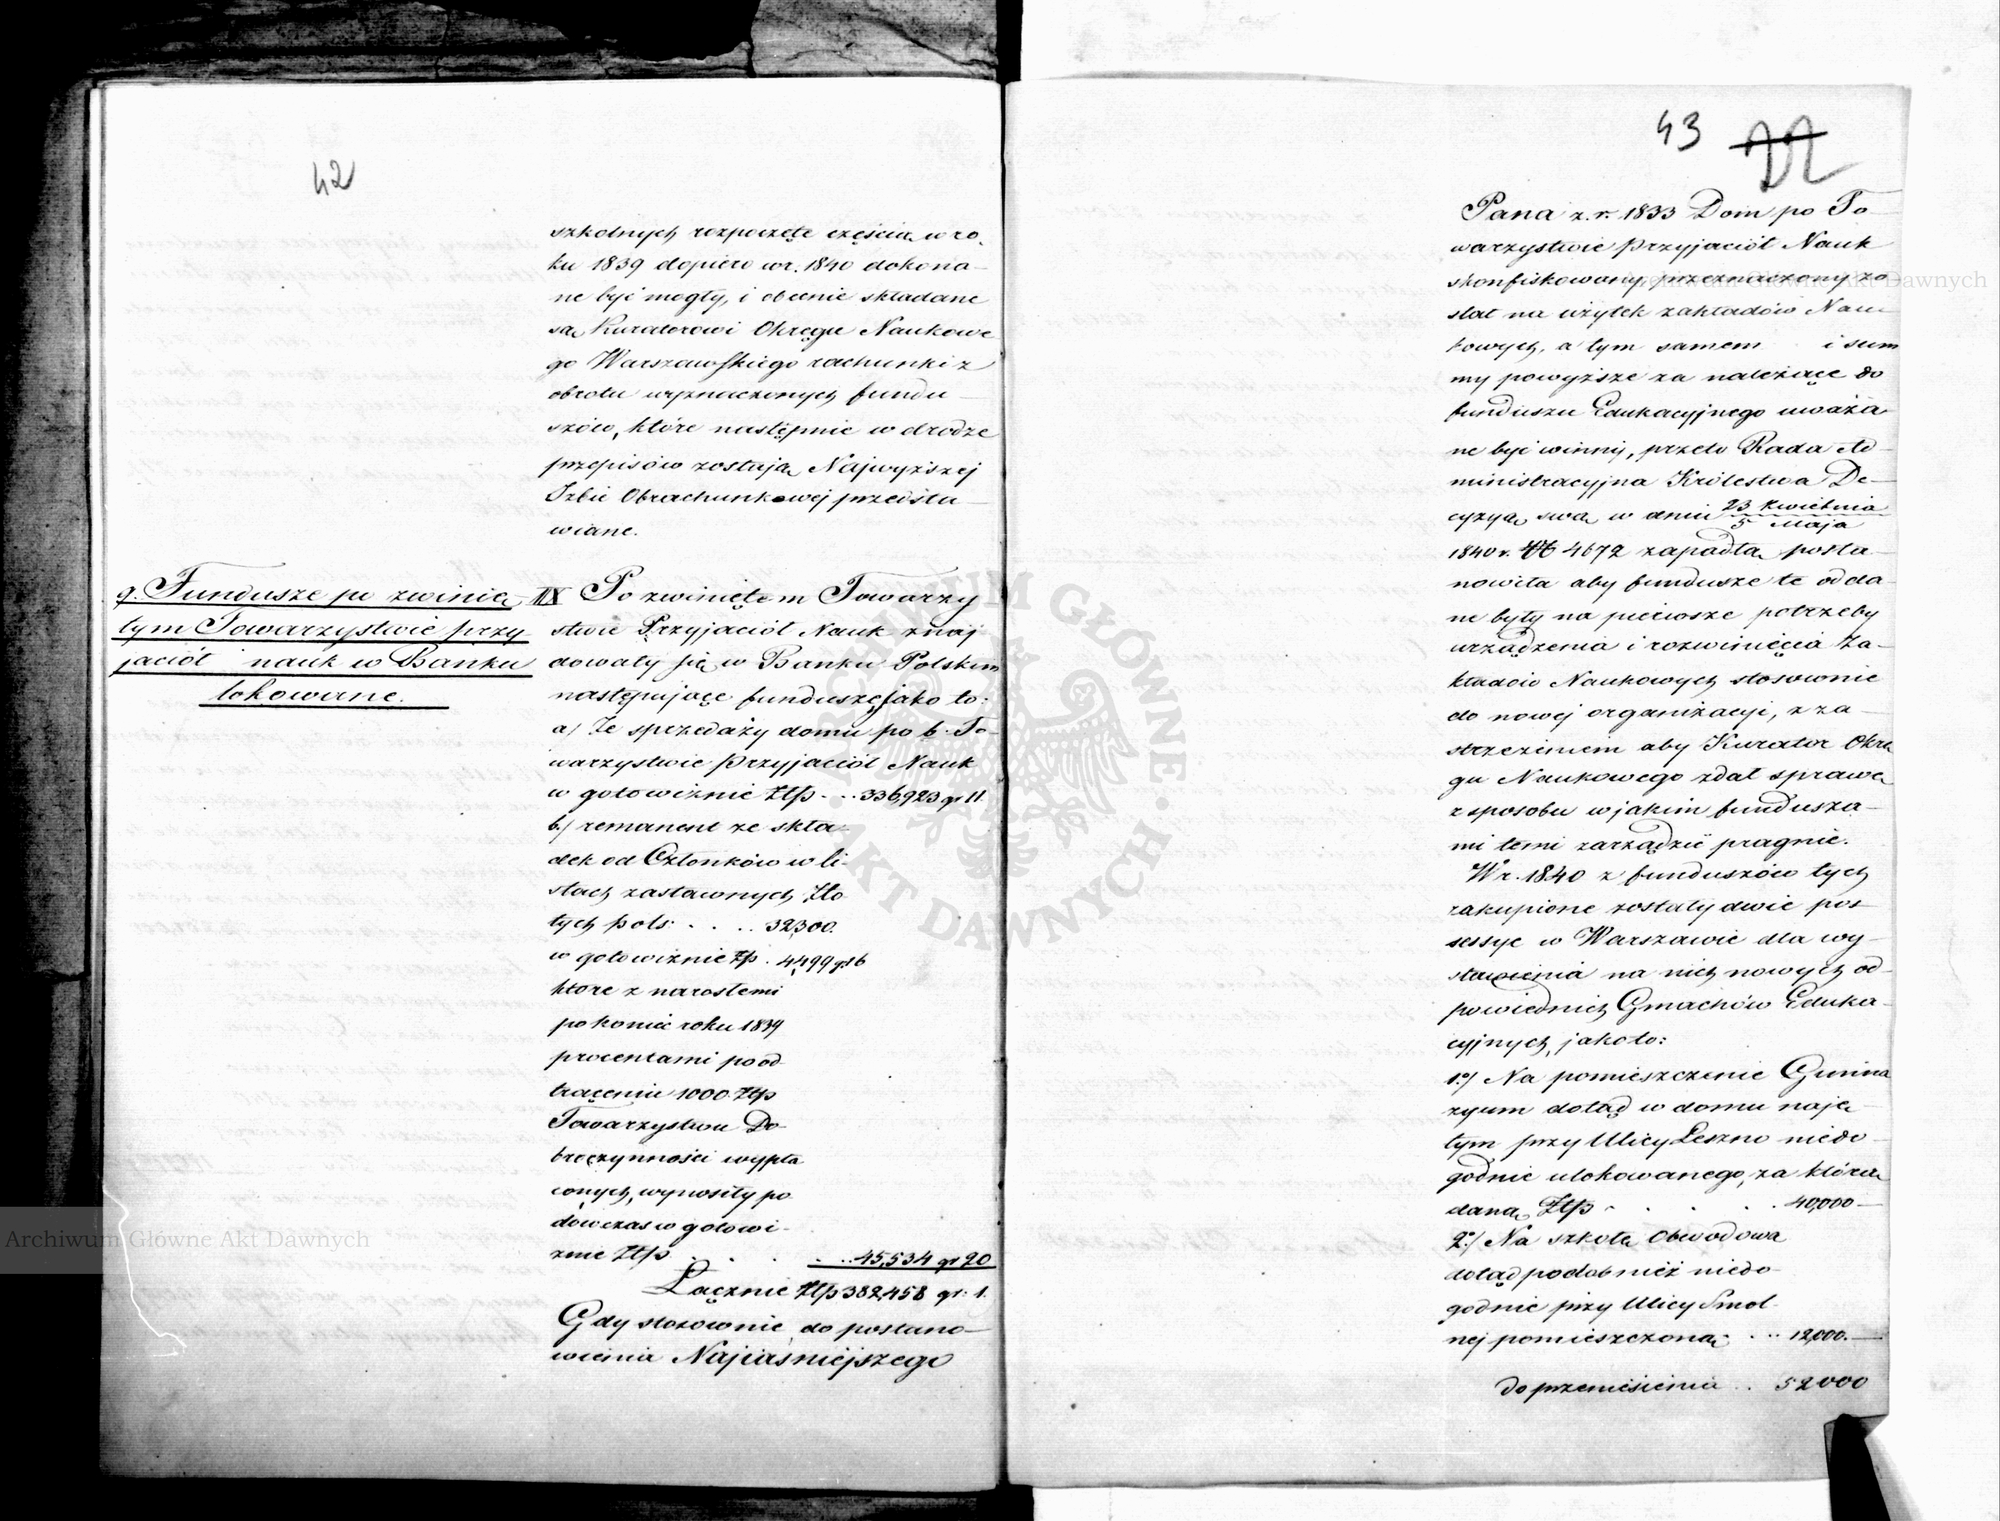 42
szkolnych rozpoczęte częścią w ro-
ku 1839 dopiero w r. 1840 dokona-
ne być mogły, i obecnie składane
są Kuratorowi Okręgu Naukowe
go Warszawskiego rachunki z
obrotu wyznaczonych fundu-
szów, które następnie w drodze
przepisów zostają Najwyższej
Izbie Obrachunkowej przedsta-
wiane.
9. Fundusze po zwinię-
tym Towarzystwie przy-
jaciół nauk w Banku
lokowane.
IX Po zwiniętem Towarzy
stwie Przyjaciół Nauk znaj
dowały się w Banku Polskim
następujące fundusze, jako to:
a/ Ze sprzedaży domu po b. To-
warzystwie Przyjaciół Nauk
w gotowiźnie Złp. . . 336,923 gr 11.
b./ remanent ze skła-
dek od Członków w li-
stach zastawnych Zło-
tych pols: . . . . 32,300.
w gotowiznie Złp. 4,499 gr 16
które z narosłemi
po koniec roku 1839
procentami po od-
trąceniu 1000 Złp
Towarzystwu Do-
broczynności wypła
conych, wynosiły po-
dówczas w gotowi-
znie Złp. . . . . . 45,534 gr 20
Łącznie Złp 382,458 gr. 1.
Gdy stosownie do postano-
wienia Najjaśniejszego
43
Pana z. r. 1833 Dom po To-
warzystwie Przyjaciół Nauk
skonfiskowany, przeznaczony zo
stał na użytek zakładów Nau-
kowych, a tym samem i sum
my powyższe za należące do
funduszu Edukacyjnego uważa-
ne być winny, przeto Rada Ad-
ministracyjna Królestwa De-
cyzyą swą w dniu 23 Kwietnia
5 Maja
1840 r. № 4672 zapadłą posta-
nowiła aby fundusze te odda-
ne były na pierwsze potrzeby
urządzenia i rozwinięcia Za-
kładów Naukowych stosownie
do nowej organizacji, z za-
strzeżeniem aby Kurator Okrę
gu Naukowego zdał sprawę
z sposobu w jakim fundusza-
mi temi zarządzić pragnie.
W r. 1840 z funduszów tych
zakupione zostały dwie pos-
sessye w Warszawie dla wy-
stawienia na nich nowych od-
powiednich Gmachów Eduka-
cyjnych, jako to:
1o/ Na pomieszczenie Gimna
zyum dotąd w domu naję-
tym przy Ulicy Leszno niedo-
godnie ulokowanego, za którą
daną Złp. . . . . 40,000 —
2o/ Na szkołę Obwodową
dotąd podobnież niedo-
godnie przy Ulicy Smol-
nej pomieszczoną . . . 12,000. —
do przeniesienia . . 52000
Archiwum Główne Akt Dawnych
Archiwum Główne Akt Dawnych
ARCHIWUM GŁÓWNE · AKT DAWNYCH ·